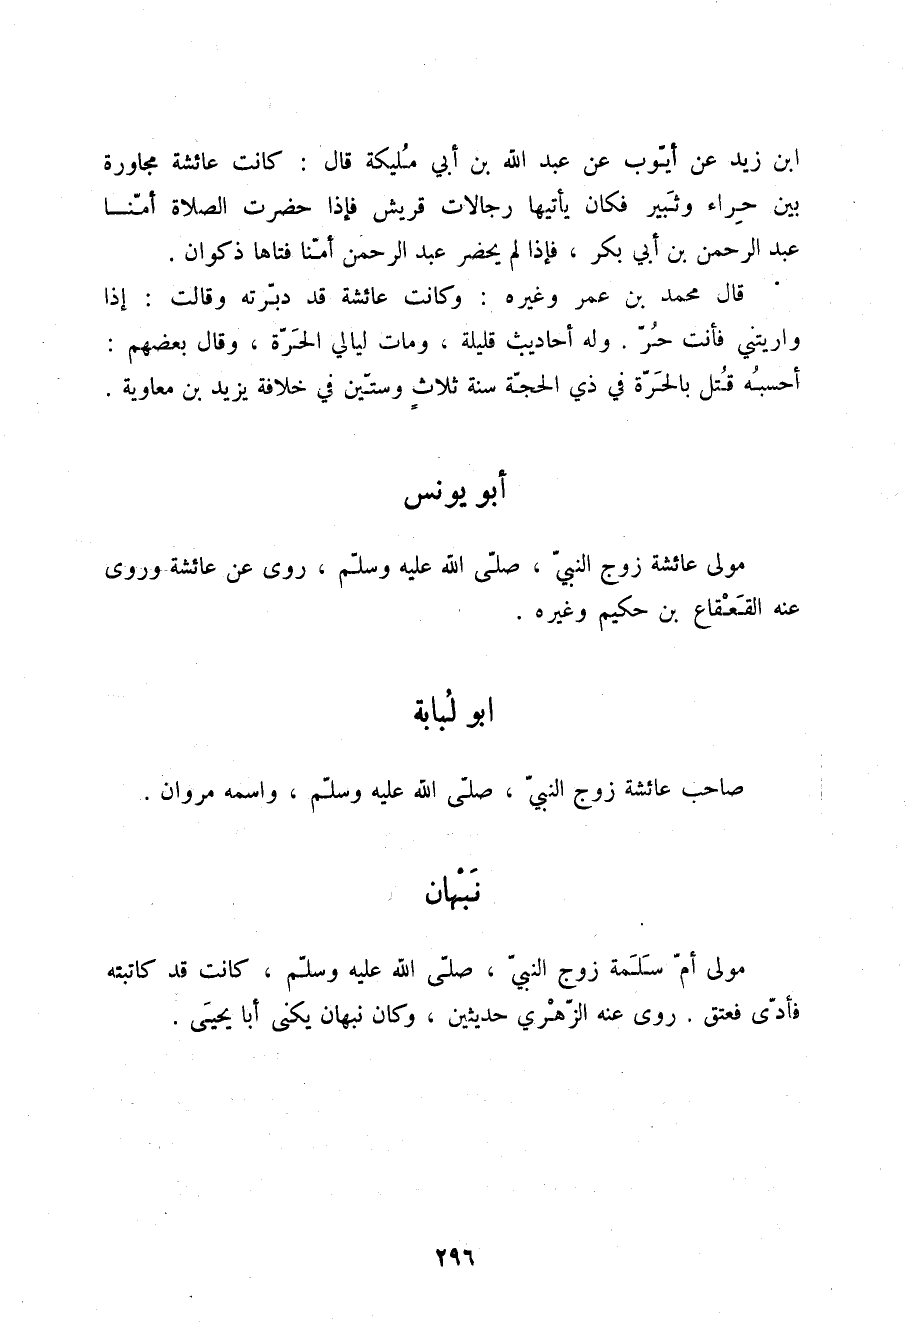 ابن زيد عن أيّوب عن عبد الله بن أبي مُليكة قال : كانت عائشة مجاورة
بين حِراء وثَبير فكان يأتيها رجالات قريش فإذا حضرت الصلاة أمّنا
عبد الرحمن بن أبي بكر ، فإذا لم يحضر عبد الرحمن أمّنا فتاها ذكوان .
قال محمد بن عمر وغيره : وكانت عائشة قد دبّرته وقالت : إذا
واريتني فأنت حُرّ . وله أحاديث قليلة ، ومات ليالي الحَرّة ، وقال بعضهم :
أحسبُه قُتل بالحَرّة في ذي الحجّة سنة ثلاثٍ وستّين في خلافة يزيد بن معاوية .
أبو يونس
مولى عائشة زوج النبيّ ، صلّى الله عليه وسلّم ، روى عن عائشة وروى
عنه القَعْقاع بن حكيم وغيره .
ابو لُبابة
صاحب عائشة زوج النبيّ ، صلّى الله عليه وسلّم ، واسمه مروان .
نَبْهان
مولى أمّ سَلَمة زوج النبيّ ، صلّى الله عليه وسلّم ، كانت قد كاتبته
فأدّى فعتق . روى عنه الزّهْري حديثين ، وكان نبهان يكنى أبا يحيَى .
٢٩٦